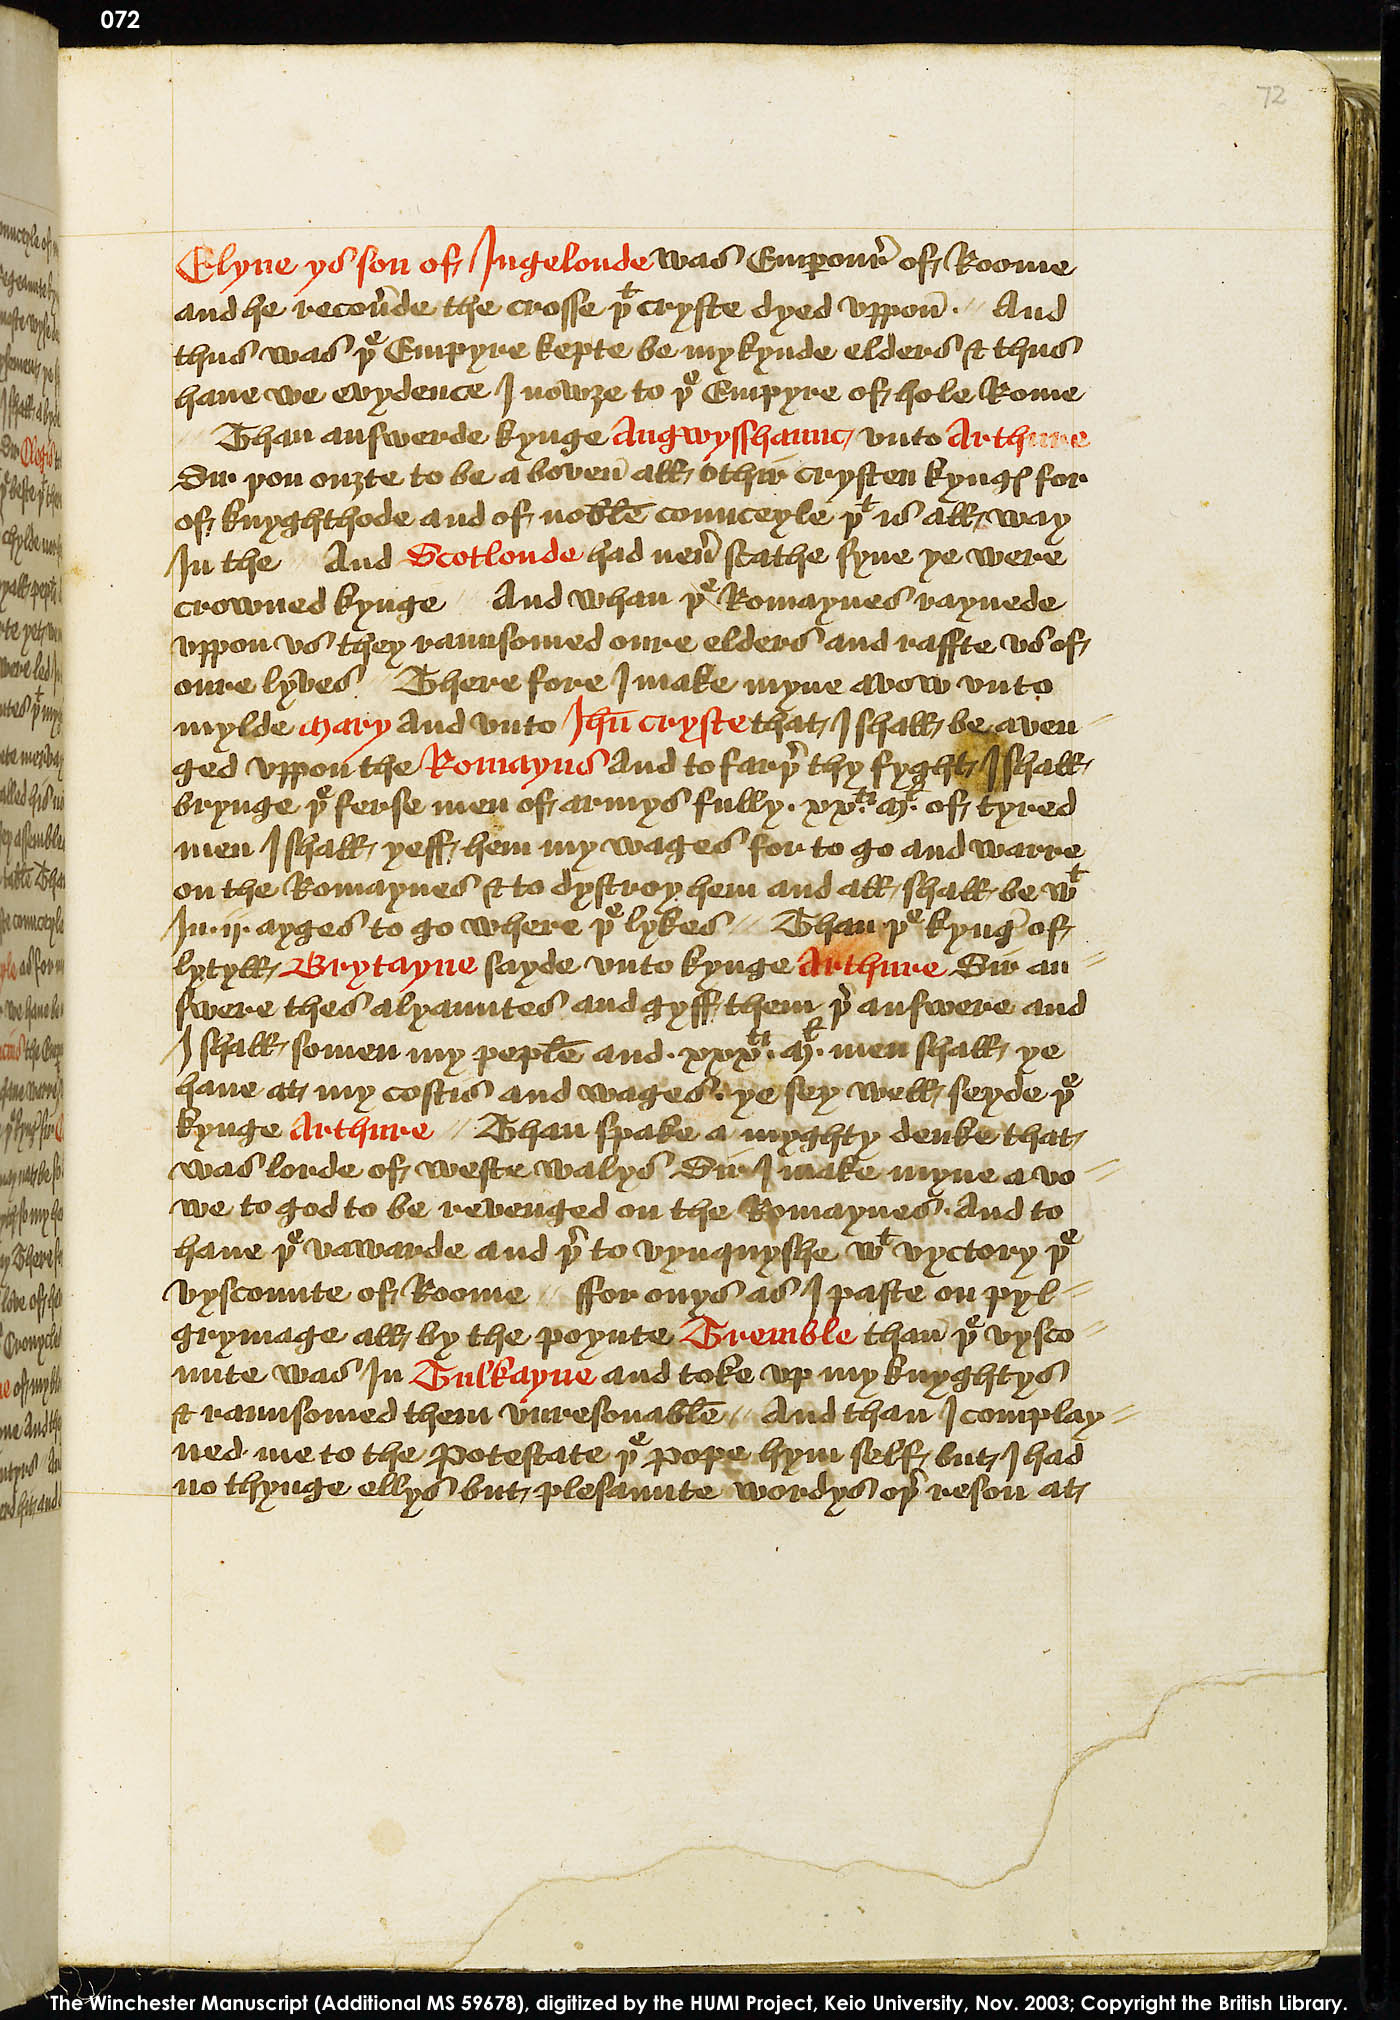 072
72
Elyne ys son of Ingelonde was Emperour̉ of Roome
and he recoủde the crosse þᵗ cryste dyed vppon̄ · // And
thus was þᵉ Empyre kepte be my kynde elders & thus
haue we evydence I nowȝe to þᵉ Empyre of hole Rome
// Than answerde kynge Angwysshaunc̉ vnto Arthure
Sir þou ouȝte to be a boven̄ all othir crysten kyngꝭ for
of knyghthode and of noble counceyle þᵗ is all way
In the // And Scotlonde had neủ scathe syne ye were
crowned kynge // And whan þᵉ Romaynes raynede
vppon vs they raunsomed oure elders and raffte vs of
oure lyves // There fore I make myne avow vnto
mylde Mary and vnto Ihū cryste that I shall be aven //
ged vppon the Romayns And to farþ̉ thy fyght I shall
brynge þᵉ ferse men of armys fully · xxᵗⁱ · Mˡ · of tyred
men I shall yeff hem my wages for to go and warre
on the Romaynes & to dystroy hem and all shall be wᵗ
In · ij · ayges to go where þᵉ lykes // Than þᵉ kyng̉ of
lytyll Brytayne sayde vnto kynge Arthure Sir an //
swere thes alyauntes and gyff them þ̉ answere and
I shall somen my peple and · xxxᵗⁱ · Mˡ · men shall ye
haue at my costis and wages · ye sey well seyde þᵉ
kynge Arthure // Than spake a myghty deuke that
was lorde of weste walys Sir I make myne a vo //
we to god to be revenged on the Romaynes · And to
haue þᵉ vawarde and þ̉ to vynquyshe wᵗ vyctory þᵉ
vyscounte of Roome // ffor onys as I paste on pyl //
grymage all by the poynte Tremble than þᵉ vysco //
unte was In Tuskayne and toke vp my knyghtys
& raunsomed them vnresonable // And than I complay //
ned me to the Potestate þᵉ pope hym self but I had
no thynge ellys but plesaunte wordys oþ̉ reson at
The Winchester Manuscript (Additional MS 59678), digitized by the HUMI Project, Keio University, Nov. 2003; Copyright the British Library.